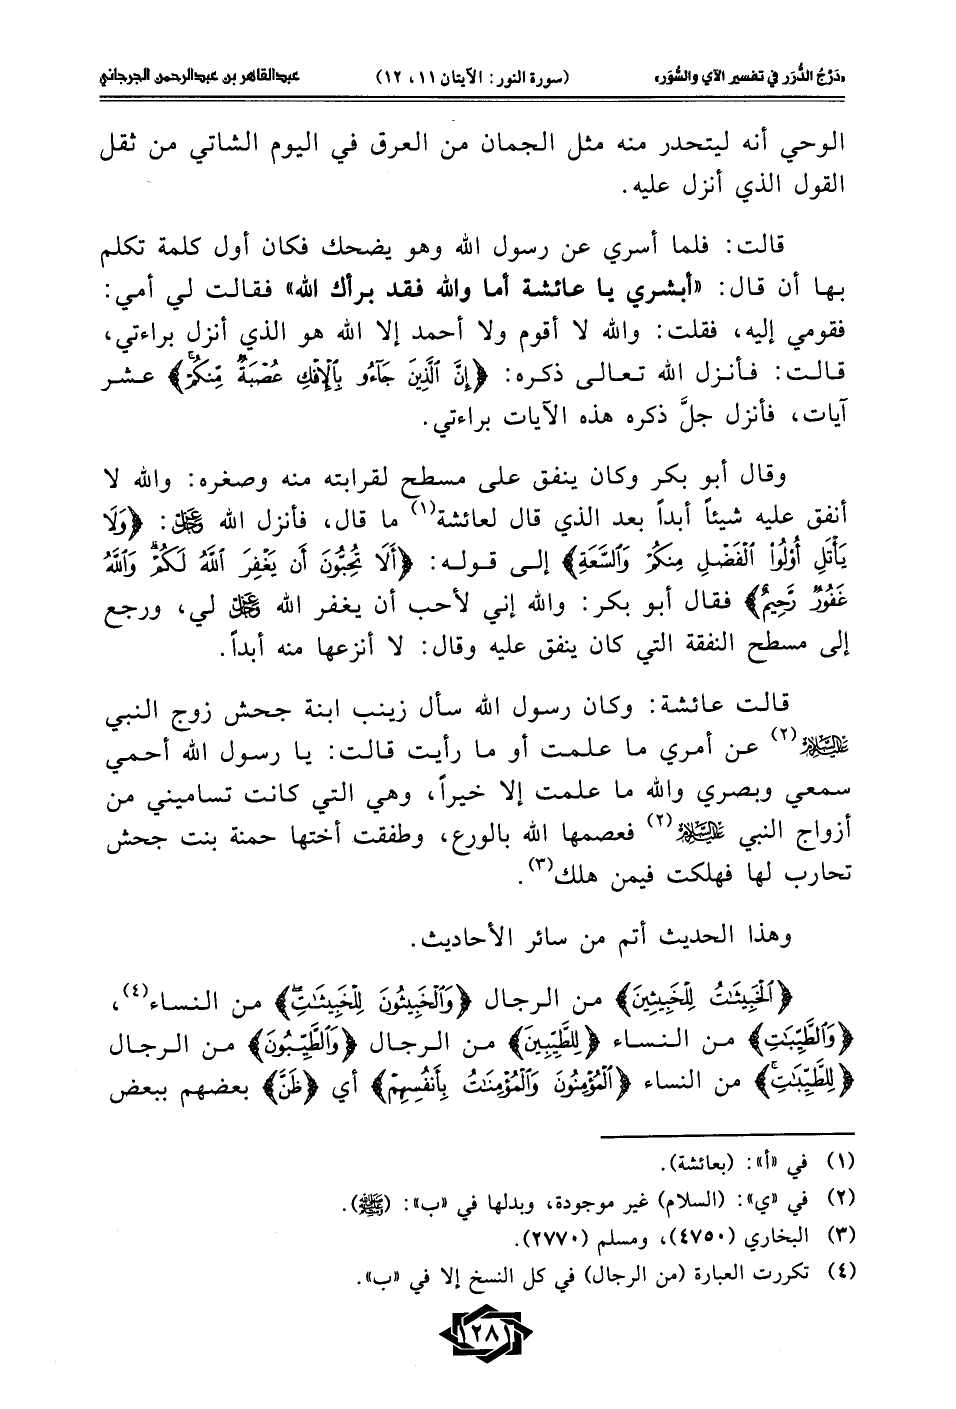 «دَرْجُ الدُّرَر في تفسير الآي والسُّوَر» (سورة النور: الآيتان ١١، ١٢) عبدالقاهر بن عبدالرحمن الجرجاني
الوحي أنه ليتحدر منه مثل الجمان من العرق في اليوم الشاتي من ثقل
القول الذي أنزل عليه.
قالت: فلما أسري عن رسول الله وهو يضحك فكان أول كلمة تكلم
بها أن قال: «أبشري يا عائشة أما والله فقد برأك الله» فقالت لي أمي:
فقومي إليه، فقلت: والله لا أقوم ولا أحمد إلا الله هو الذي أنزل براءتي،
قالت: فأنزل الله تعالى ذكره: ﴿إِنَّ ٱلَّذِينَ جَآءُو بِٱلْإِفْكِ عُصْبَةٌ مِّنكُمْ﴾ عشر
آيات، فأنزل جلَّ ذكره هذه الآيات براءتي.
وقال أبو بكر وكان ينفق على مسطح لقرابته منه وصغره: والله لا
أنفق عليه شيئاً أبداً بعد الذي قال لعائشة(١) ما قال، فأنزل الله عز وجل: ﴿وَلَا
يَأْتَلِ أُوْلُواْ ٱلْفَضْلِ مِنكُمْ وَٱلسَّعَةِ﴾ إلى قوله: ﴿أَلَا تُحِبُّونَ أَن يَغْفِرَ ٱللَّهُ لَكُمْ وَٱللَّهُ
غَفُورٌ رَّحِيمٌ﴾ فقال أبو بكر: والله إني لأحب أن يغفر الله عز وجل لي، ورجع
إلى مسطح النفقة التي كان ينفق عليه وقال: لا أنزعها منه أبداً.
قالت عائشة: وكان رسول الله سأل زينب ابنة جحش زوج النبي
عليه السلام(٢) عن أمري ما علمت أو ما رأيت قالت: يا رسول الله أحمي
سمعي وبصري والله ما علمت إلا خيراً، وهي التي كانت تساميني من
أزواج النبي عليه السلام(٢) فعصمها الله بالورع، وطفقت أختها حمنة بنت جحش
تحارب لها فهلكت فيمن هلك(٣).
وهذا الحديث أتم من سائر الأحاديث.
﴿ٱلْخَبِيثَٰتُ لِلْخَبِيثِينَ﴾ من الرجال ﴿وَٱلْخَبِيثُونَ لِلْخَبِيثَٰتِ﴾ من النساء(٤)،
﴿وَٱلطَّيِّبَٰتُ﴾ من النساء ﴿لِلطَّيِّبِينَ﴾ من الرجال ﴿وَٱلطَّيِّبُونَ﴾ من الرجال
﴿لِلطَّيِّبَٰتِ﴾ من النساء ﴿ٱلْمُؤْمِنُونَ وَٱلْمُؤْمِنَٰتُ بِأَنفُسِهِمْ﴾ أي ﴿ظَنَّ﴾ بعضهم ببعض
(١) في «أ»: (بعائشة).
(٢) في «ي»: (السلام) غير موجودة، وبدلها في «ب»: (ﷺ).
(٣) البخاري (٤٧٥٠)، ومسلم (٢٧٧٠).
(٤) تكررت العبارة (من الرجال) في كل النسخ إلا في «ب».
١٢٨١